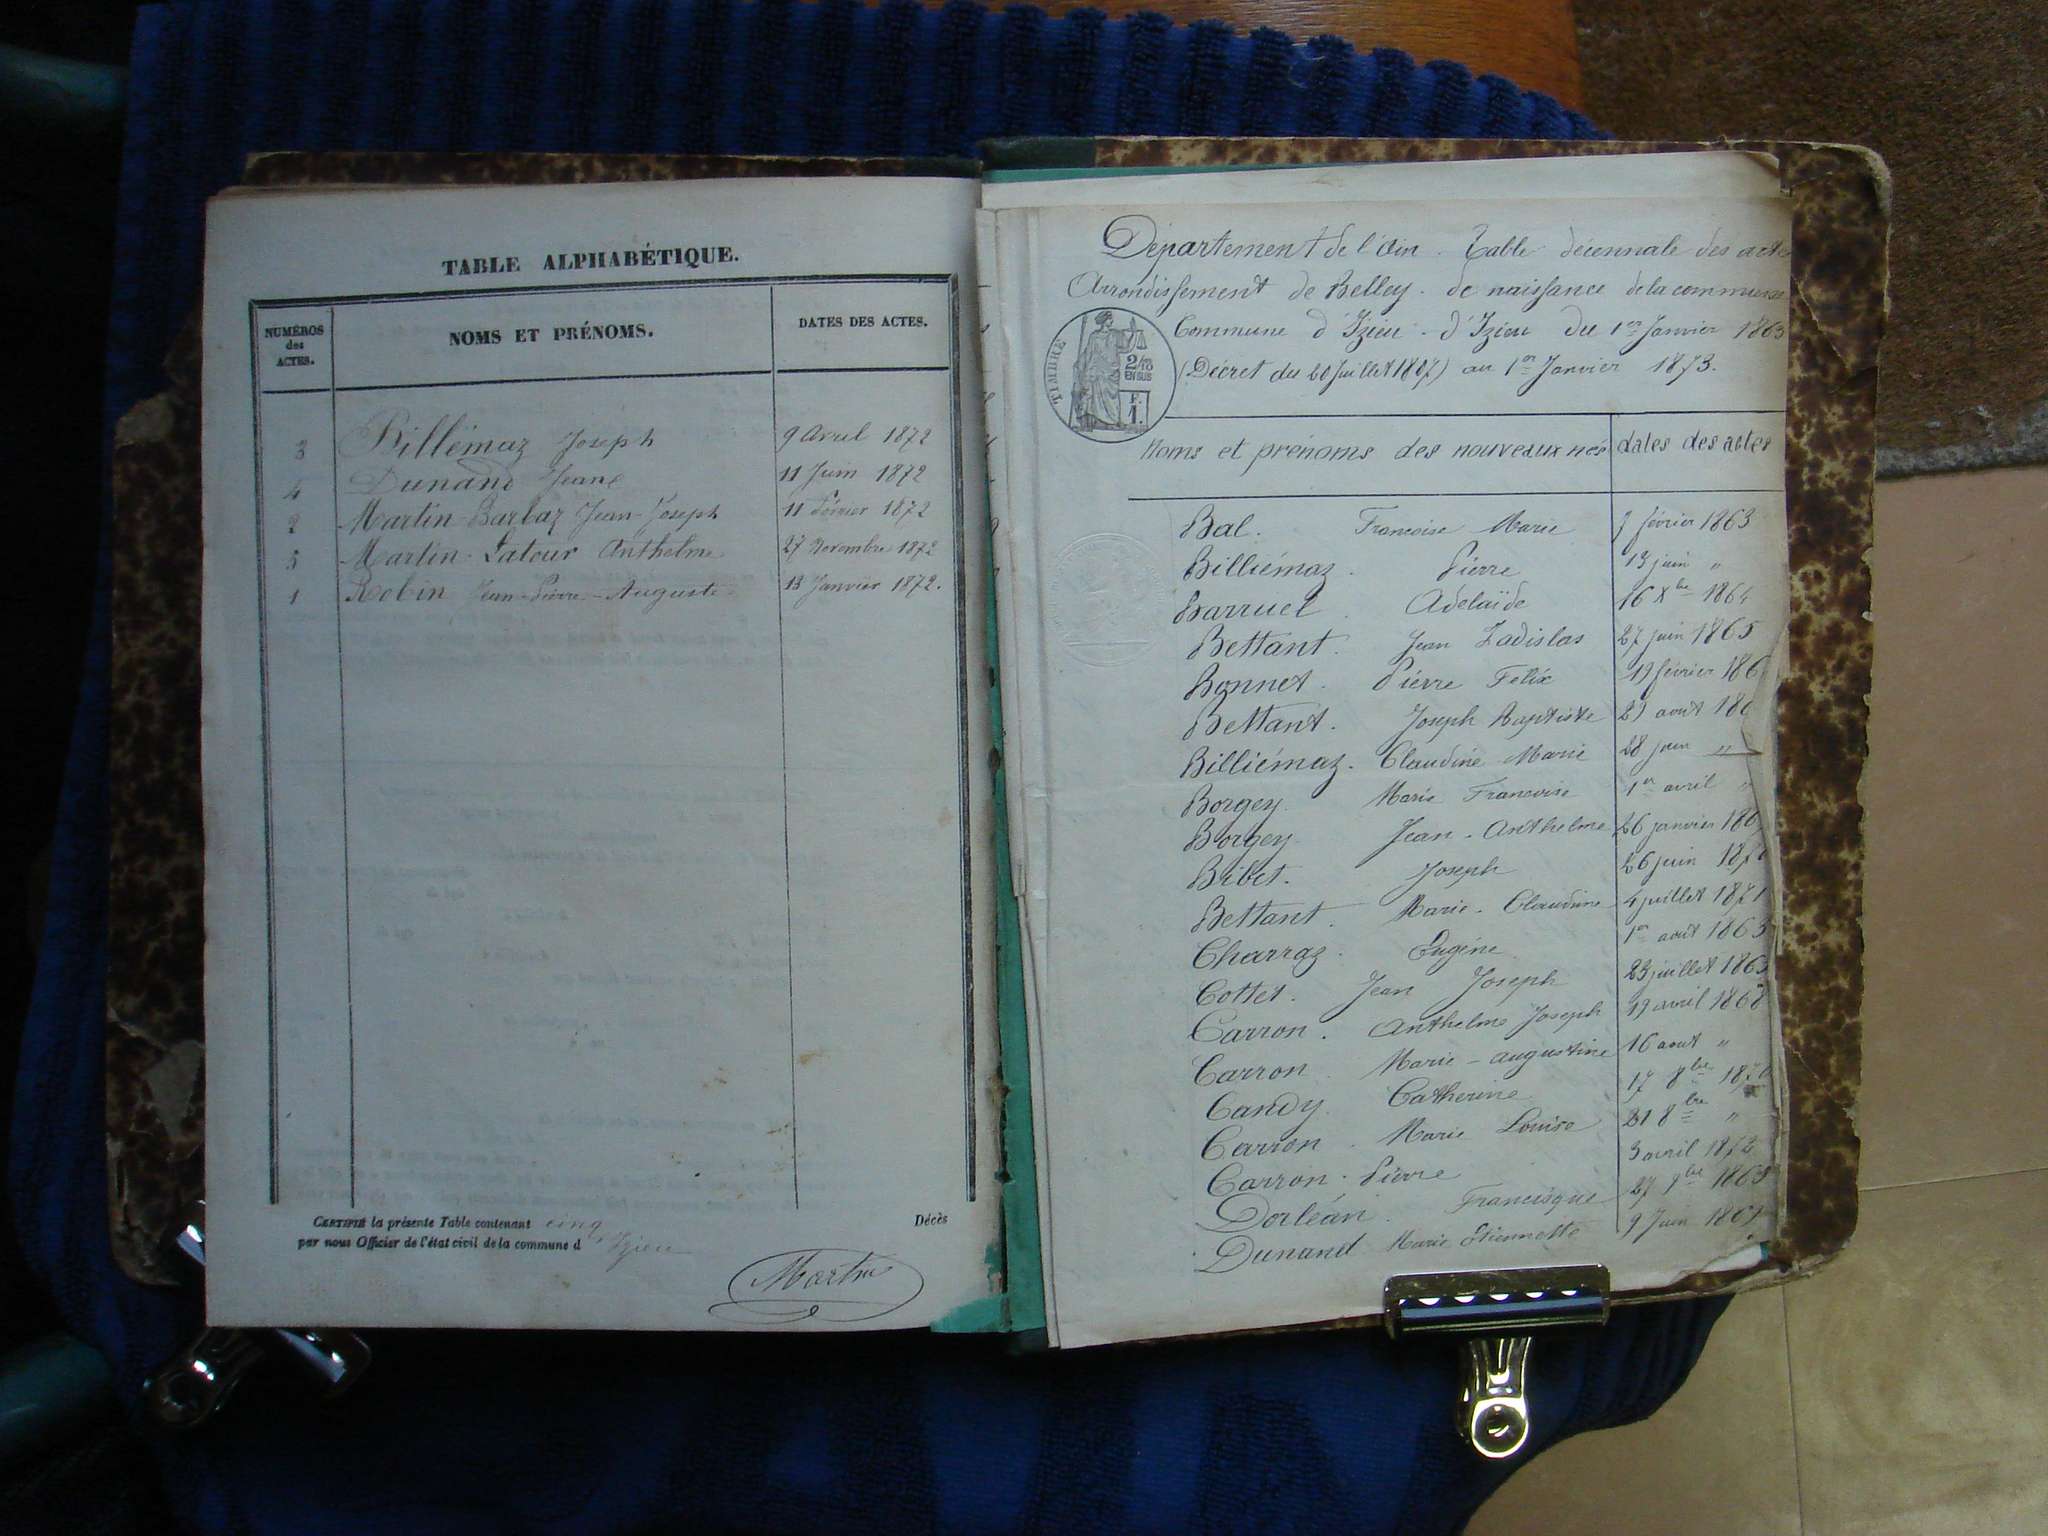 TABLE ALPHABÉTIQUE.
NUMÉROS
des
ACTES.
NOMS ET PRÉNOMS.
DATES DES ACTES.
3 Billémaz Joseph 9 Avril 1872
4 Dunand Jeane 11 Juin 1872
2 Martin-Barbaz Jean-Joseph 11 Février 1872
5 Martin-Latour Anthelme 27 Novembre 1872
1 Robin Jean-Pierre-Auguste 13 Janvier 1872.
CERTIFIÉ la présente Table contenant cinq Décès
par nous Officier de l'état civil de la commune d Izieu
Martin
Département de l'Ain. Table décennale des actes
Arrondissement de Belley. de naissance de la commune
Commune d'Izieu. d'Izieu du 1er Janvier 1863
(Décret du 20 Juillet 1807) au 1er Janvier 1873.
TIMBRE
2/10
EN SUS
F.
1.
Noms et prénoms des nouveaux nés dates des actes
Bal. Francoise Marie février 1863
Billiémaz. Pierre 13 juin "
Barruel. Adelaïde 16 Xbre 1864
Bettant. Jean Ladislas 27 juin 1865
Bonnet. Pierre Felix 19 février 186
Bettant. Joseph Baptiste 29 aout 186
Billiémaz. Claudine Marie 28 juin "
Borgey. Marie Francoise 1er avril "
Borgey Jean-Anthelme 26 janvier 186
Bibet. Joseph 26 juin 187
Bettant. Marie-Claudine 4 juillet 1871
Charraz. Eugéne 1er aout 1863
Cottet. Jean Joseph 23 juillet 1865
Carron. Anthelme Joseph 19 avril 1868
Carron Marie-augustine 16 aout "
Candy. Catherine 17 8bre 1870
Carron. Marie Louise 21 8bre "
Carron. Pierre 3 avril 1872
Dorléan. Francisque 27 9bre 1863
Dunand Marie Etiennette 9 Juin 1867